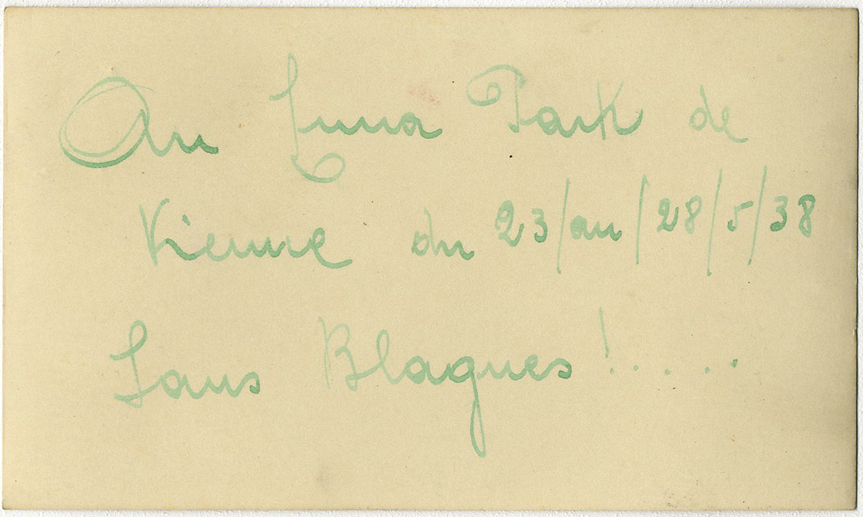 Au Luna Park de
Vienne du 23/au/28/5/38
Sans Blagues !.....